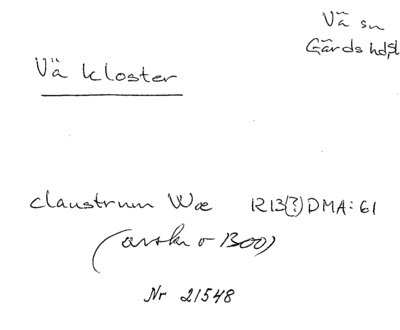 Vä sn
Gärds hd, Sk
Vä kloster
claustrum Wæ 1213(?) DMA: 61
(avskr o 1300)
Nr 21548